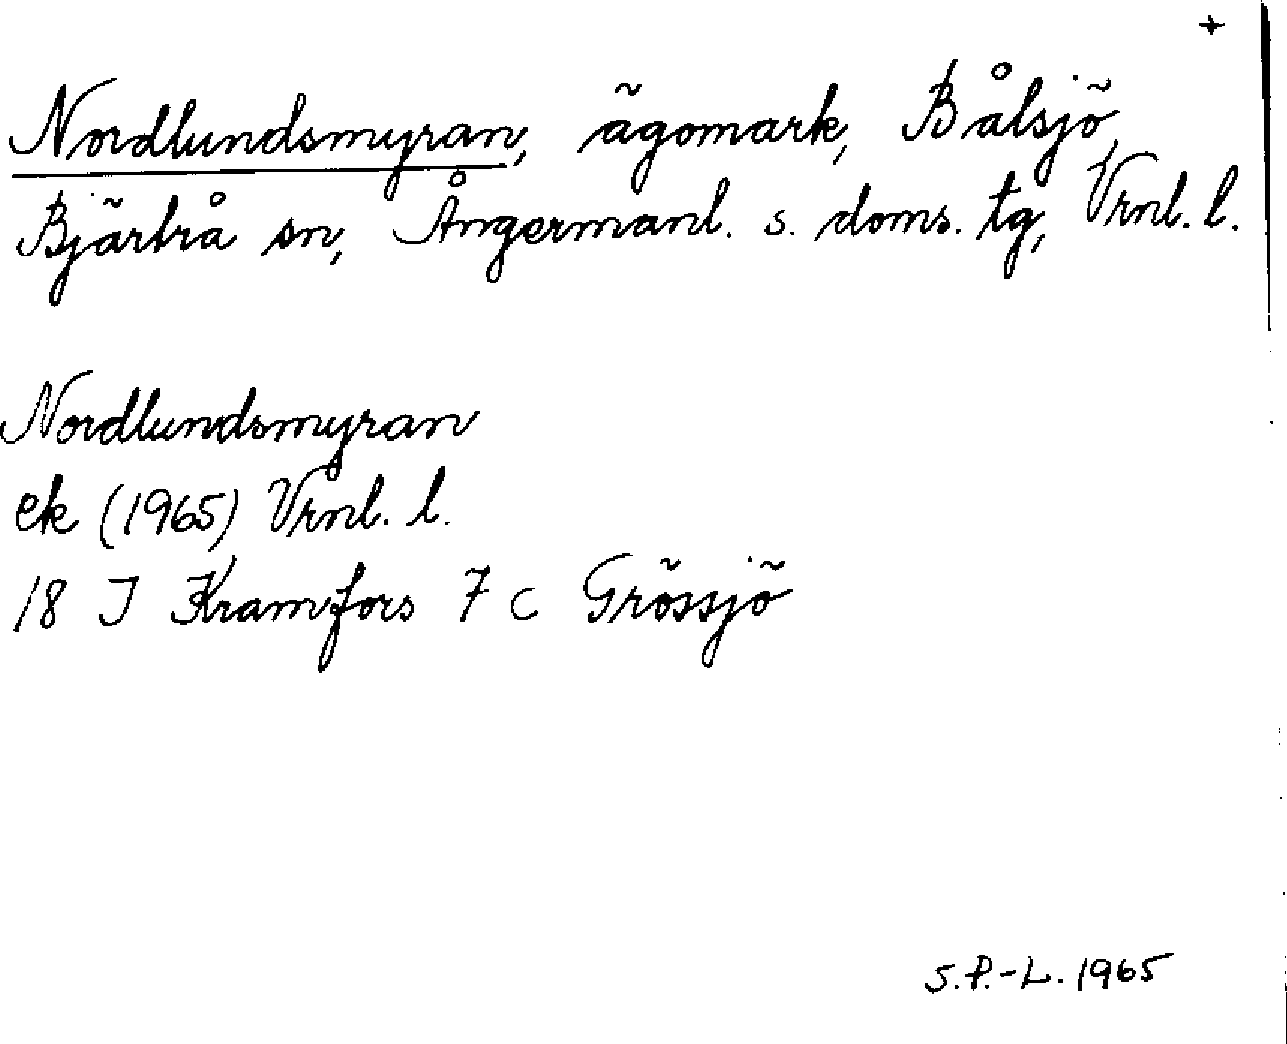 +
Nordlundsmyran, ägomark, Bålsjö,
Bjärtrå sn, Ångermanl. s. doms. tg, Vrnl. l.
Nordlundsmyran
ek (1965) Vrnl. l.
18 I Kramfors 7 c Grössjö
S.P.-L. 1965